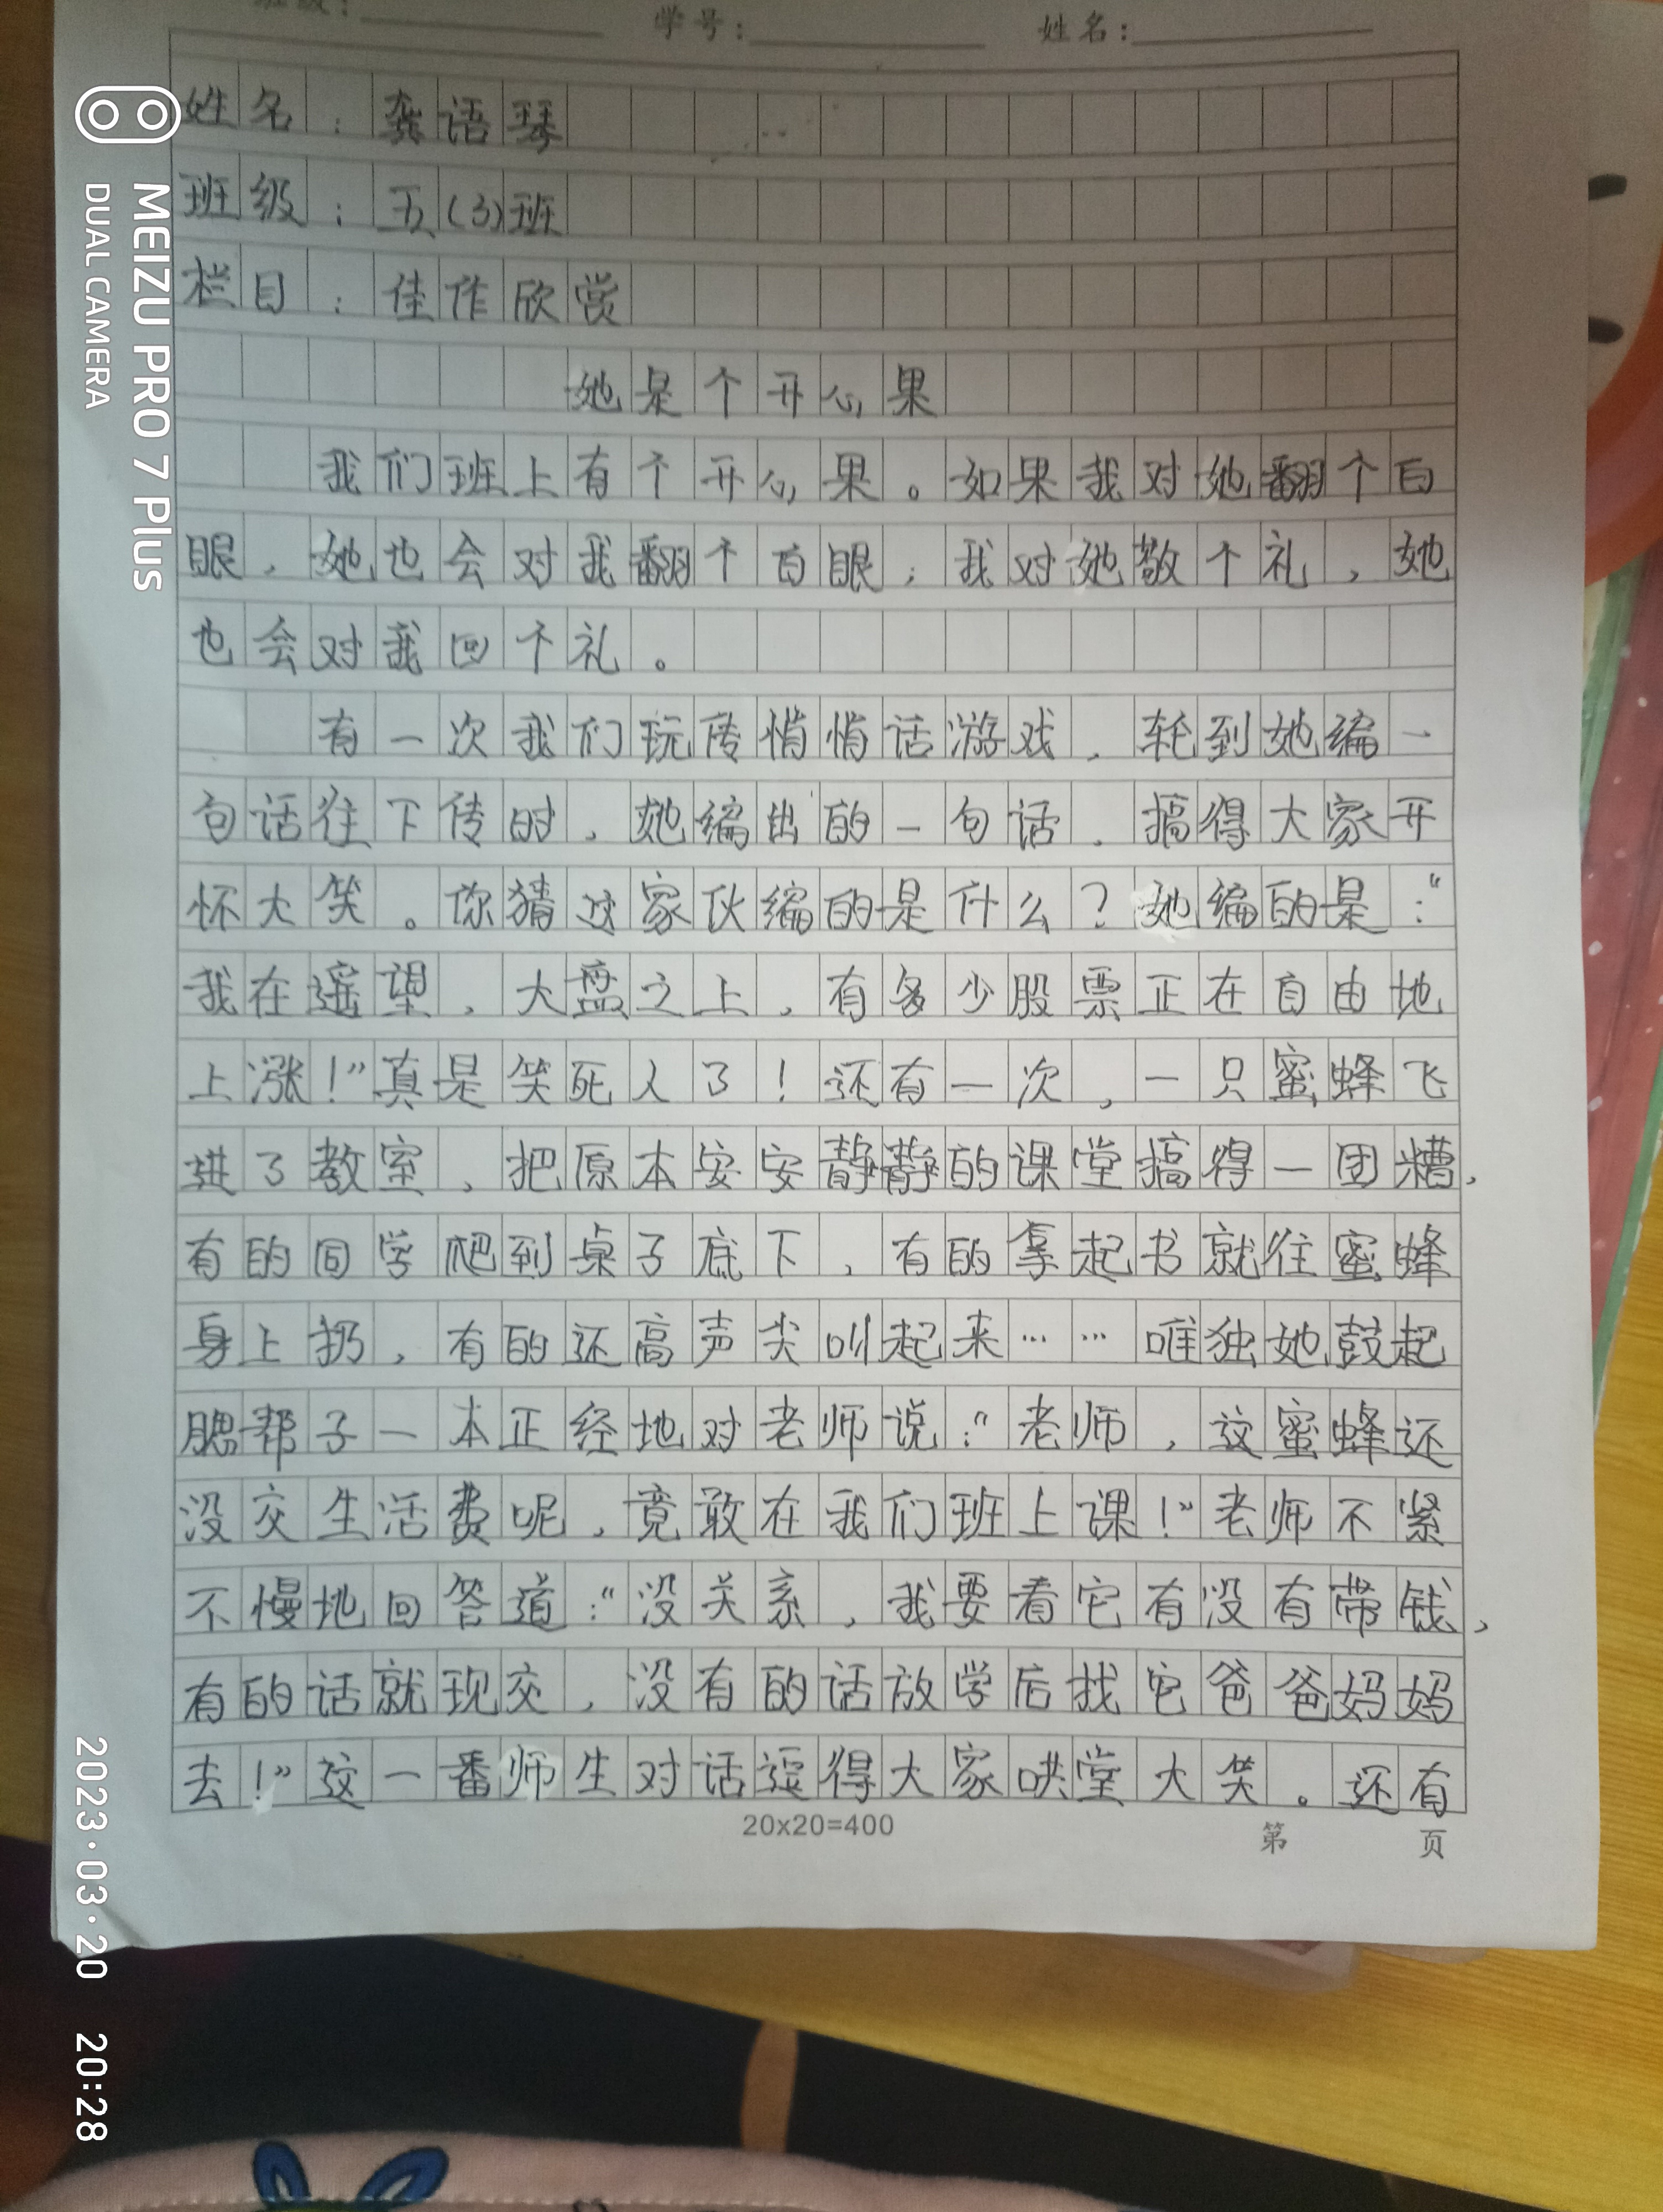 班级: 学号: 姓名:
姓名：龚语琴
班级：五(3)班
栏目：佳作欣赏
她是个开心果
我们班上有个开心果。如果我对她翻个白
眼，她也会对我翻个白眼；我对她敬个礼，她
也会对我回个礼。
有一次我们玩传悄悄话游戏，轮到她编一
句话往下传时，她编出的一句话，搞得大家开
怀大笑。你猜这家伙编的是什么？她编的是：“
我在遥望，大盘之上，有多少股票正在自由地
上涨！”真是笑死人了！还有一次，一只蜜蜂飞
进了教室，把原本安安静静的课堂搞得一团糟，
有的同学爬到桌子底下，有的拿起书就往蜜蜂
身上扔，有的还高声尖叫起来……唯独她鼓起
腮帮子一本正经地对老师说：“老师，这蜜蜂还
没交生活费呢，竟敢在我们班上课！”老师不紧
不慢地回答道：“没关系，我要看它有没有带钱，
有的话就现交，没有的话放学后找它爸爸妈妈
去！”这一番师生对话逗得大家哄堂大笑。还有
20x20=400
第 页
MEIZU PRO 7 Plus
DUAL CAMERA
2023·03·20 20:28